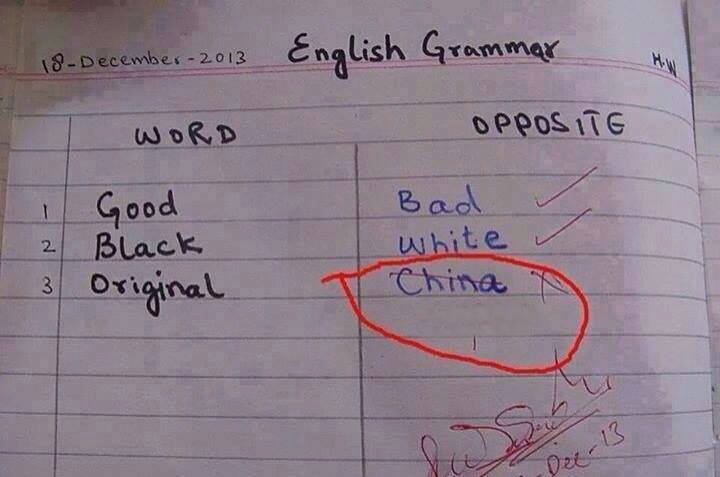 18-December-2013 English Grammar H.W
WORD OPPOSITE
1 Good Bad
2 Black White
3 Original China
Dec-13